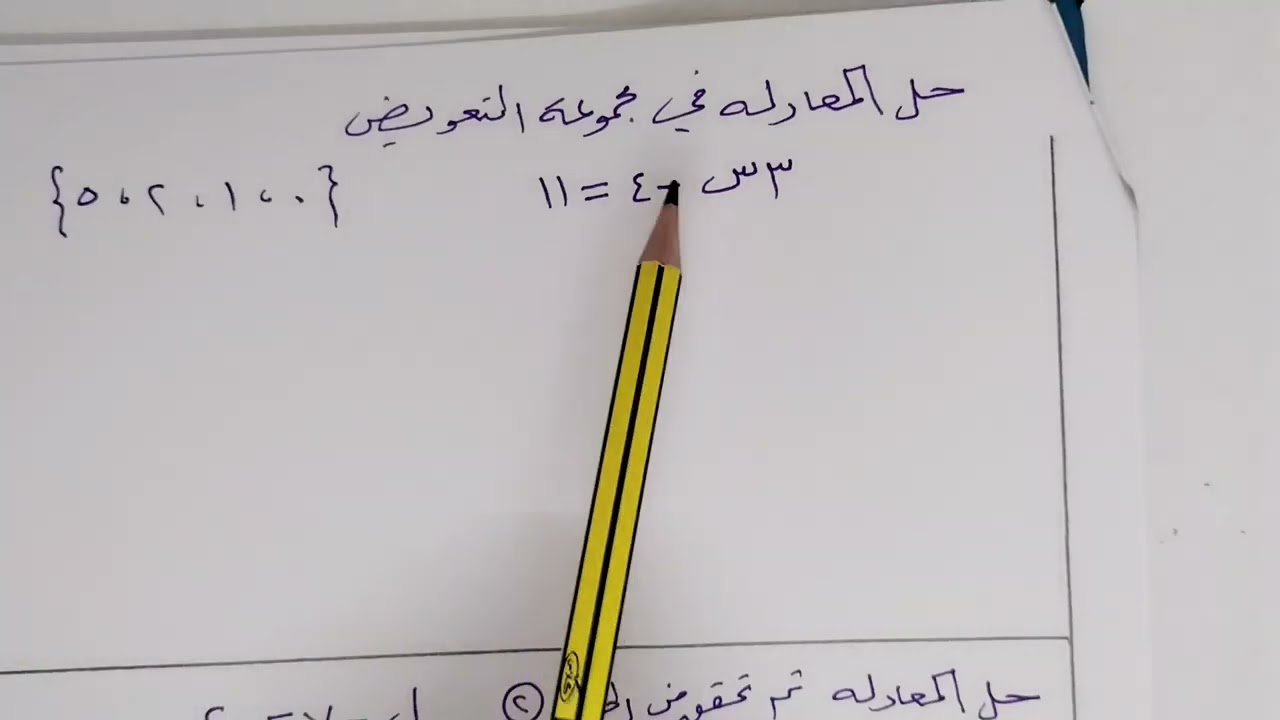 حل المعادله في مجموعة التعويض
٣س - ٤ = ١١ {٠ ، ١ ، ٢ ، ٥}
حل المعادله ثم تحقق من ②